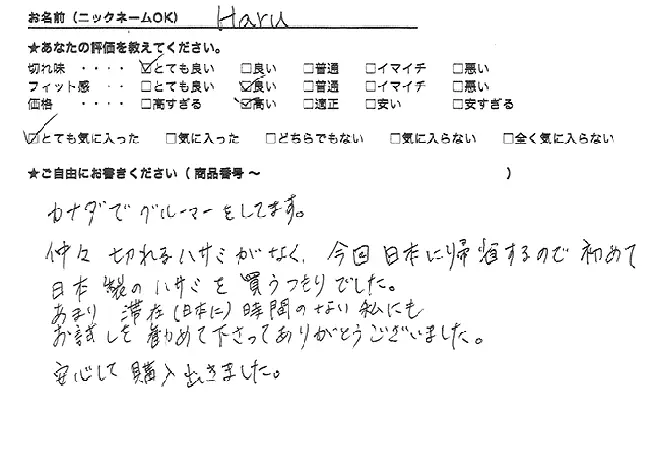 お名前（ニックネームOK） Haru
★あなたの評価を教えてください。
切れ味 ・・・・ ☑とても良い □良い □普通 □イマイチ □悪い
フィット感 ・・ □とても良い ☑良い □普通 □イマイチ □悪い
価格 ・・・・ □高すぎる ☑高い □適正 □安い □安すぎる
☑とても気に入った □気に入った □どちらでもない □気に入らない □全く気に入らない
★ご自由にお書きください（商品番号～ ）
カナダでグルーマーをしてます。
仲々切れるハサミがなく、今回日本に帰省するので初めて
日本製のハサミを買うつもりでした。
あまり滞在（日本に）時間のない私にも
お試しを勧めて下さってありがとうございました。
安心して購入出きました。